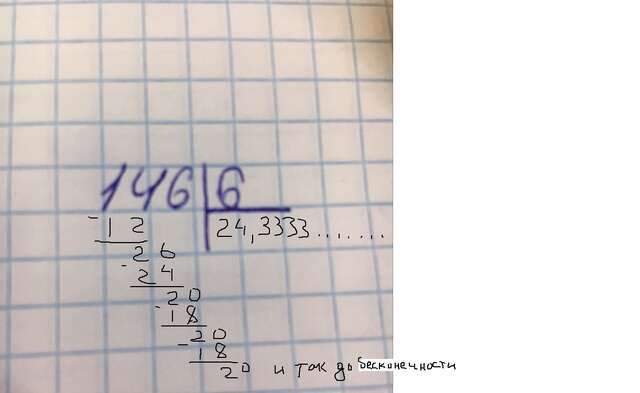 146 6
-12 24,3333.......
26
-24
20
-18
20
-18
20 и так до бесконечности